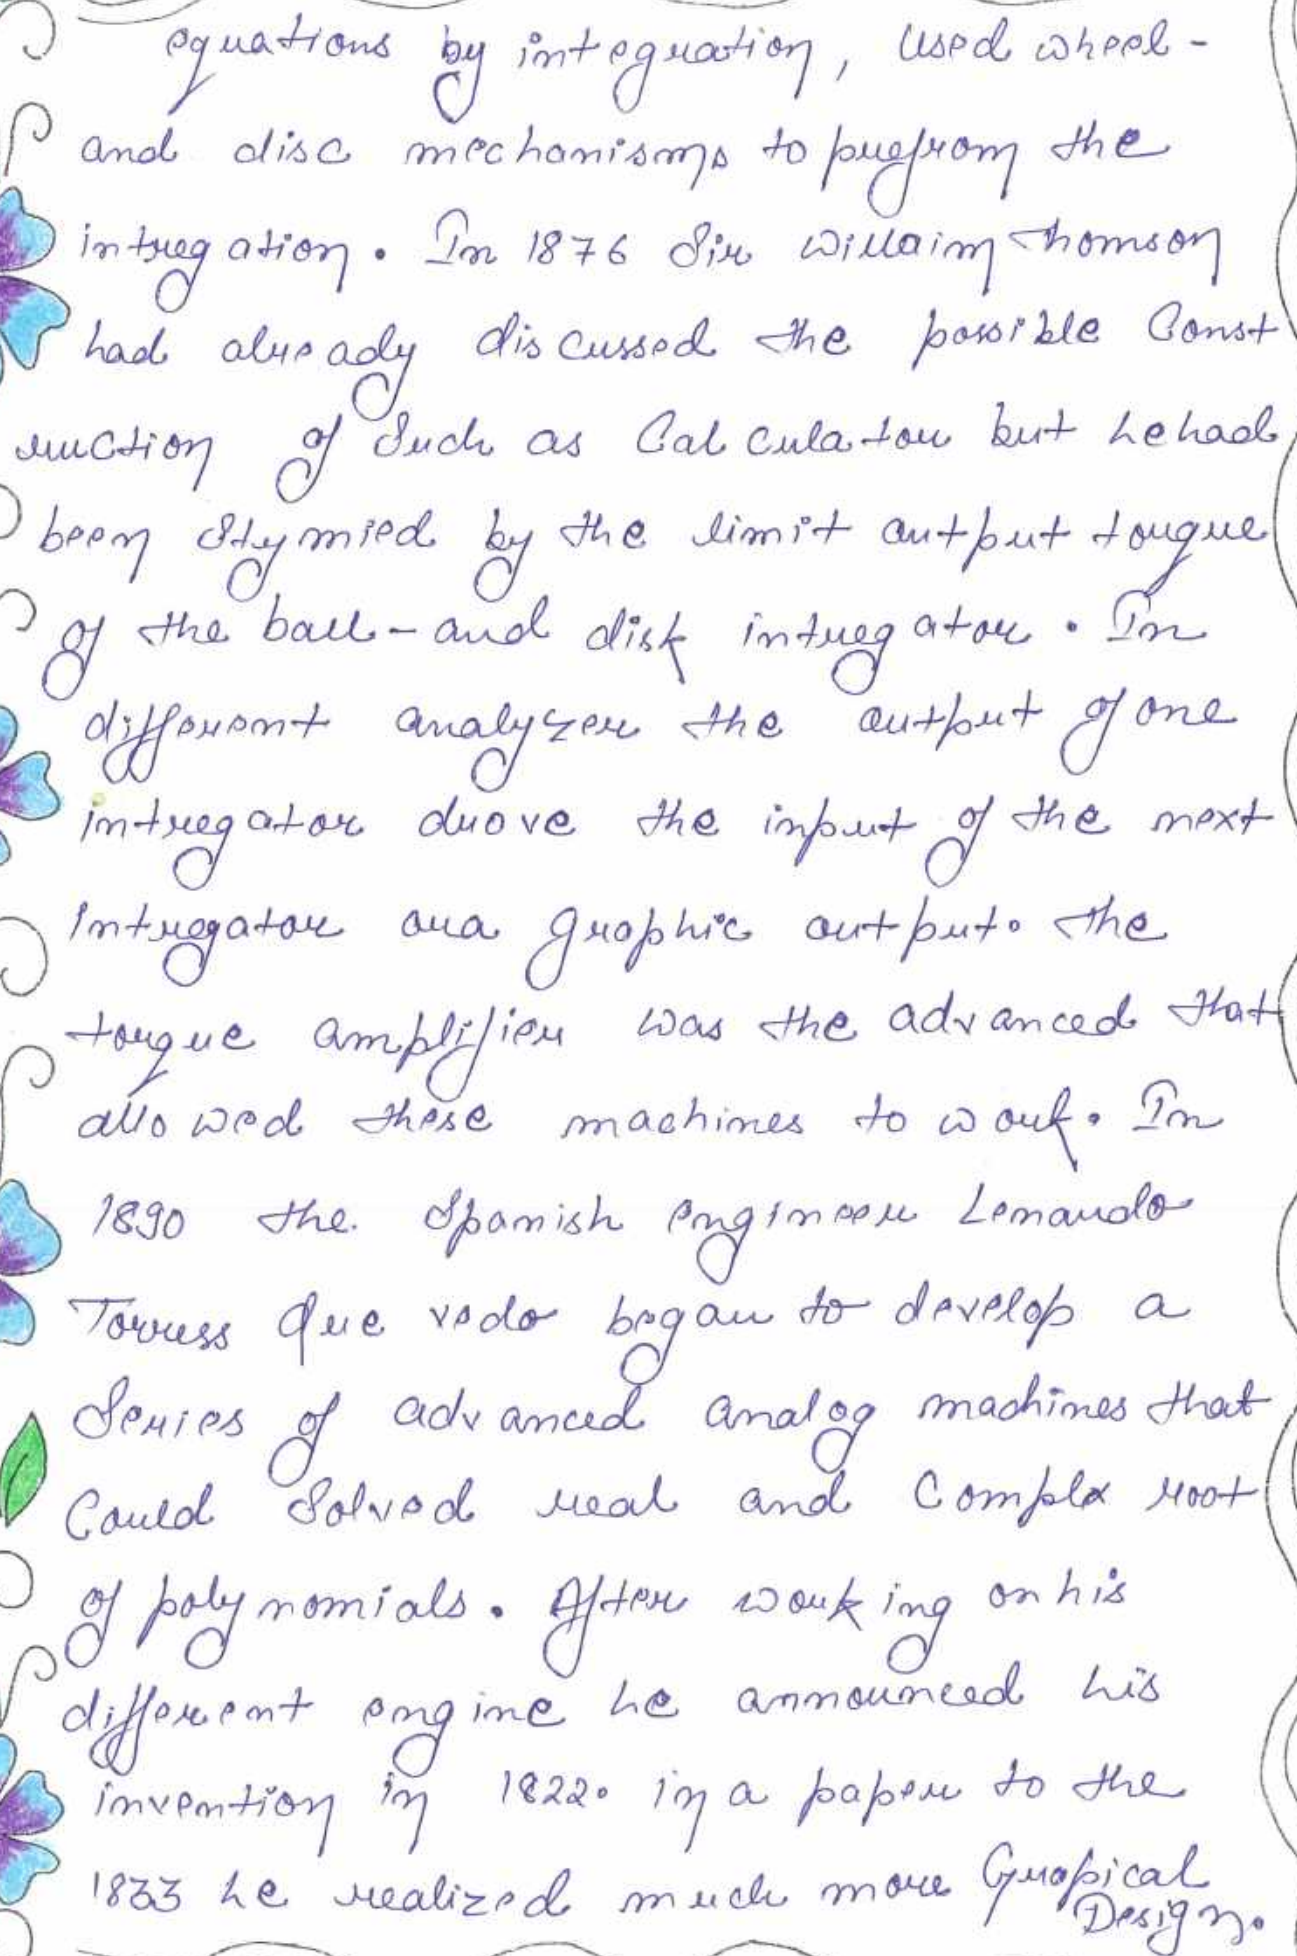 equations by integration, used wheel-
and disc mechanisms to prefrom the
intregation. In 1876 Sir willaim thomson
had already discussed the possible Const
ruction of Such as Calculator but he had
been Stymied by the limit output torque
of the ball-and disk intregator. In
different analyzer the output of one
intregator drove the input of the next
Intregator ora graphic output. the
torque amplifier was the advanced that
allowed these machines to work. In
1890 the Spanish engineer Lenardo
Torress Que vedo began to develop a
Series of advanced analog machines that
Could Solved real and Complex root
of polynomials. After working on his
different engine he announced his
invention in 1822. in a paper to the
1833 he realized much more Grapical
Design.